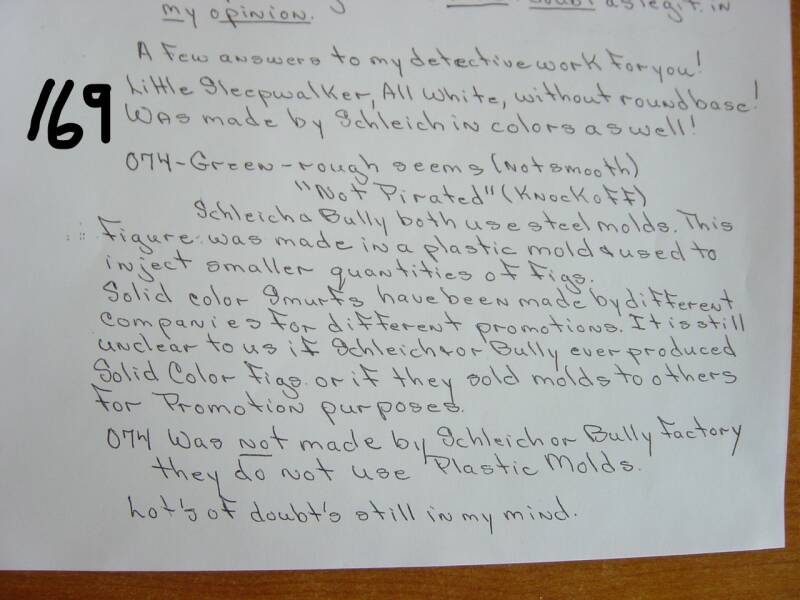 doubt as legit. in
my opinion.
A few answers to my detective work for you!
169
Little Sleepwalker, All White, without round base!
Was made by Schleich in colors as well!
074-Green-rough seems (Not smooth)
"Not Pirated" (Knock off)
Schleich & Bully both use steel molds. This
figure was made in a plastic mold & used to
inject smaller quantities of figs.
Solid color Smurfs have been made by different
companies for different promotions. It is still
unclear to us if Schleich & or Bully ever produced
Solid Color Figs. or if they sold molds to others
for Promotion purposes.
074 Was not made by Schleich or Bully factory
they do not use Plastic Molds.
Lot's of doubt's still in my mind.